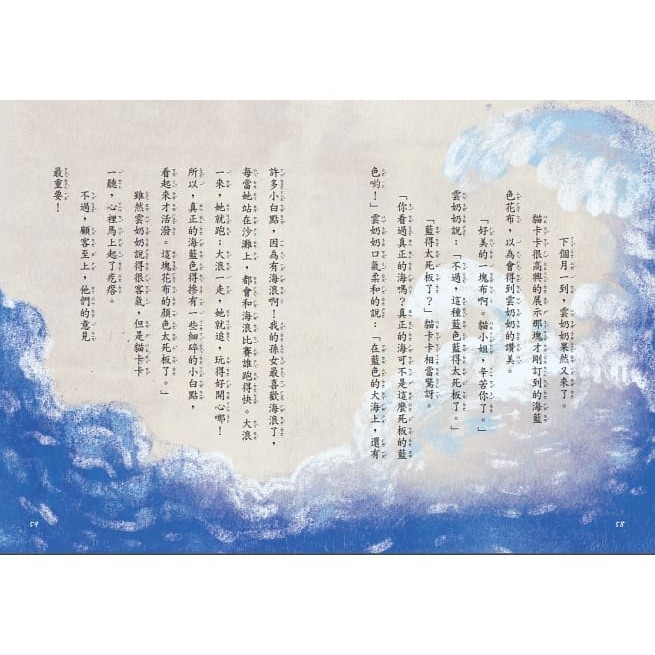 下個月一到，雲奶奶果然又來了。
貓卡卡很高興的展示那塊才剛訂到的海藍
色花布，以為會得到雲奶奶的讚美。
「好美的一塊布啊。貓小姐，辛苦你了。」
雲奶奶說：「不過，這種藍色藍得太死板了。」
「藍得太死板了？」貓卡卡相當驚訝。
「你看過真正的海嗎？真正的海可不是這麼死板的藍
色喲！」雲奶奶口氣柔和的說：「在藍色的大海上，還有
58
許多小白點，因為有海浪啊！我的孫女最喜歡海浪了，
每當她站在沙灘上，都會和海浪比賽誰跑得快。大浪
一來，她就跑；大浪一走，她就追，玩得好開心哪！
所以，真正的海藍色得摻有一些細碎的小白點，
看起來才活潑。這塊花布的顏色太死板了。」
雖然雲奶奶說得很客氣，但是貓卡卡
一聽，心裡馬上起了疙瘩。
不過，顧客至上，他們的意見
最重要！
59